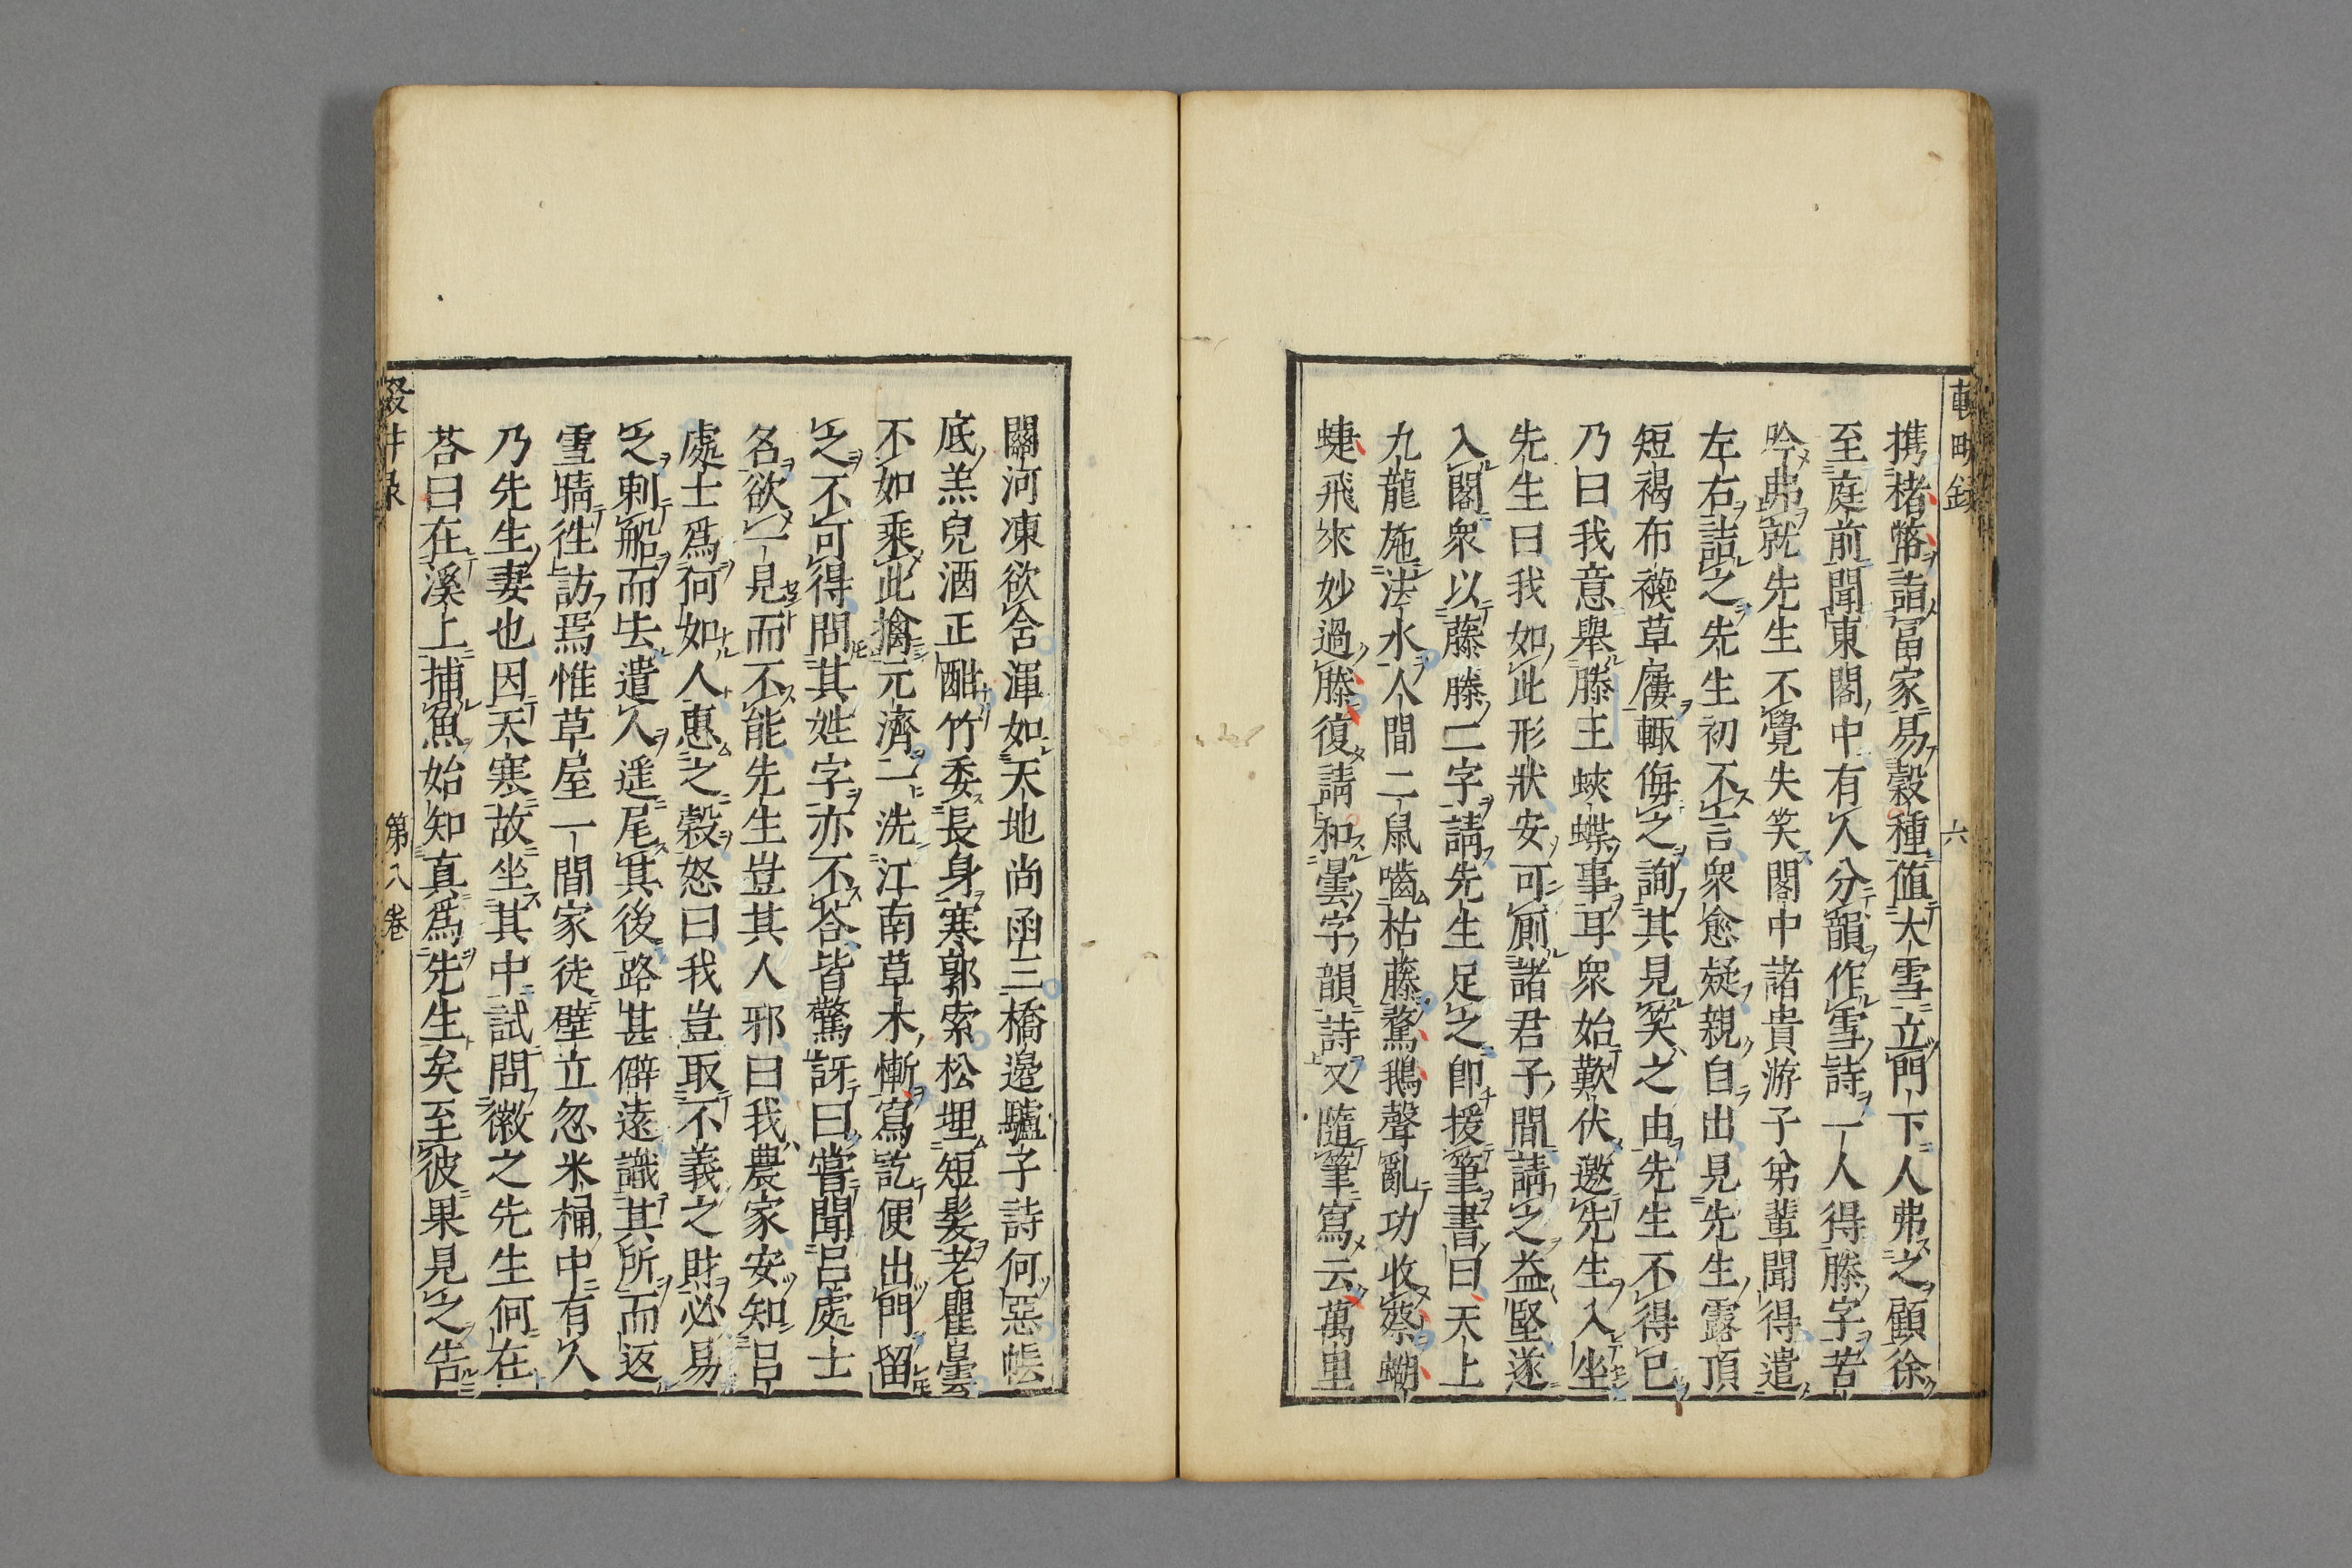 輟畊錄
六
携楮幣詣冨家易穀種值大雪立門下人弗之顧徐
至庭前聞東閣中有人分韻作雪詩一人得滕字苦
吟弗就先生不覺失笑閣中諸貴游子弟輩聞得遣
左右詰之先生初不言衆愈疑親自出見先生露頂
短褐布襪草屨輙侮之詢其見笑之由先生不得已
乃曰我意舉滕王蛺蝶事耳衆始歎伏邀先生入坐
先生曰我如此形狀安可廁諸君子間請之益堅遂
入閣衆以藤滕二字請先生足之卽援筆書曰天上
九龍施法水人間二鼠嚙枯藤驚鵝聲亂功收蔡蝴
蜨飛來妙過滕復請和曇字韻詩又隨筆寫云萬里
關河凍欲含渾如天地尚函三橋邊驢子詩何惡帳
底羔兒酒正酣竹委長身寒郭索松埋短髮老瞿曇
不如乘此擒元濟一洗江南草木慚寫訖便出門留
之不可得問其姓字亦不荅皆驚訝曰嘗聞呂處士
名欲一見而不能先生豈其人邪曰我農家安知呂
處士爲何如人惠之穀怒曰我豈取不義之財必易
之刺船而去遣人遥尾其後路甚僻遠識其所而返
雪晴徃訪焉惟草屋一間家徒壁立忽米桶中有人
乃先生妻也因天寒故坐其中試問徽之先生何在
荅曰在溪上捕魚始知真爲先生矣至彼果見之告
第八卷